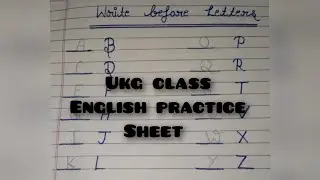 Write before letters
A B O P
C D Q R
E F T
UKG CLASS
ENGLISH PRACTICE
SHEET
H V
I J W X
K L Y Z